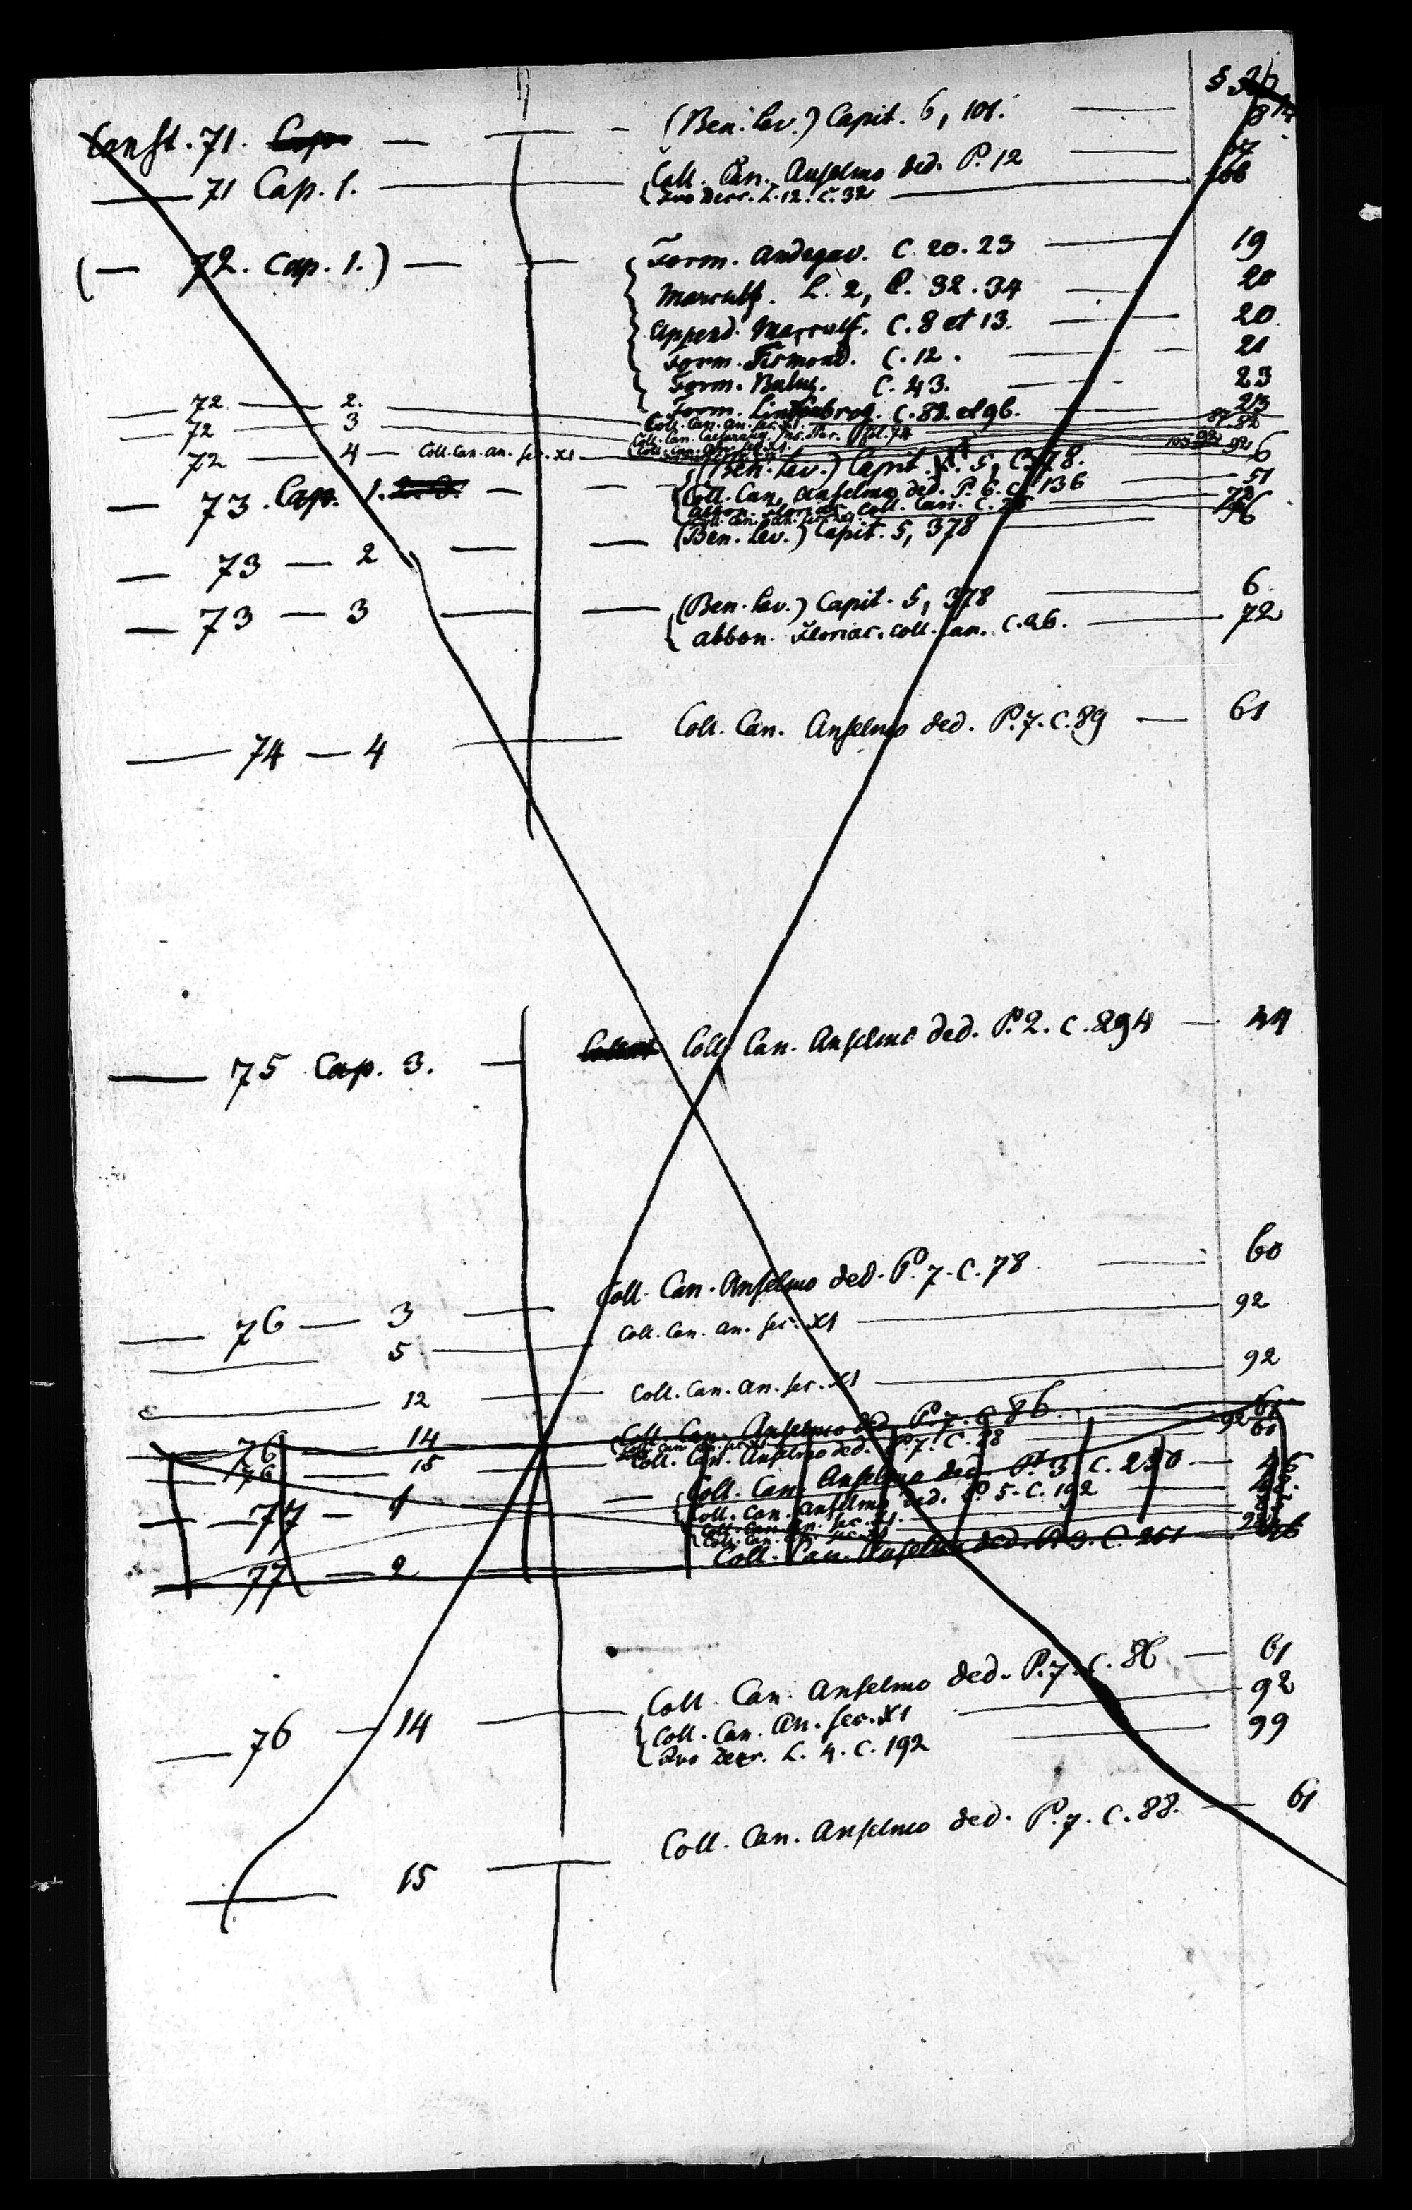 Const. 71. Cap. — (Ben. Lev.) Capit. 6, 101. —
— 71 Cap. 1. — Coll. Can. Anselmo ded. P. 12 — 57
Ivo Decr. L. 12. C. 32 — 66
(— 72. Cap. 1.) — Form. Andegav. C. 20. 23 — 19
Marculf. L. 2, C. 32. 34 — 20
Append. Marculf. C. 8 et 13. — 20
Form. Sirmond. C. 12. — 21
Form. Baluz. C. 43. — 23
— 72 — 2. Form. Lindenbrog. C. 82. et 96. — 23
— 72 — 3 Coll. Can. an. sec. XI.
— 72 — 4 — Coll. Can. an. sec. XI
(Ben. Lev.) Capit. 5, C. 378. — 6
— 73. Cap. 1. — Coll. Can. Anselmo ded. P. 6. C. 136 — 51
— 73 — 2 — (Ben. Lev.) Capit. 5, 378
— 73 — 3 — (Ben. Lev.) Capit. 5, 378 — 6
Abbon. Floriac. Coll. Can. C. 26. — 72
— 74 — 4 — Coll. Can. Anselmo ded. P. 7. C. 89 — 61
— 75 Cap. 3. — Coll. Can. Anselmo ded. P. 2. C. 294 — 44
— 76 — 3 — Coll. Can. Anselmo ded. P. 7. C. 78 — 60
— 5 — Coll. Can. an. sec. XI — 92
— 12 — Coll. Can. an. sec. XI — 92
— 76 — 14 — Coll. Can. Anselmo ded. P. 7. C. 86. — 61
— 76 — 15 — Coll. Can. Anselmo ded. P. 7. C. 88
— 77 — 1 — Coll. Can. Anselmo ded. P. 3. C. 250 — 46
Coll. Can. Anselmo ded. P. 5. C. 192
— 77 — 2 — Coll. Can. Anselmo ded. P. 3. C. 251 — 46
— 76 — 14 — Coll. Can. Anselmo ded. P. 7. C. 86 — 61
Coll. Can. An. sec. XI — 92
Ivo Decr. L. 4. C. 192 — 99
— 15 — Coll. Can. Anselmo ded. P. 7. C. 88. — 61